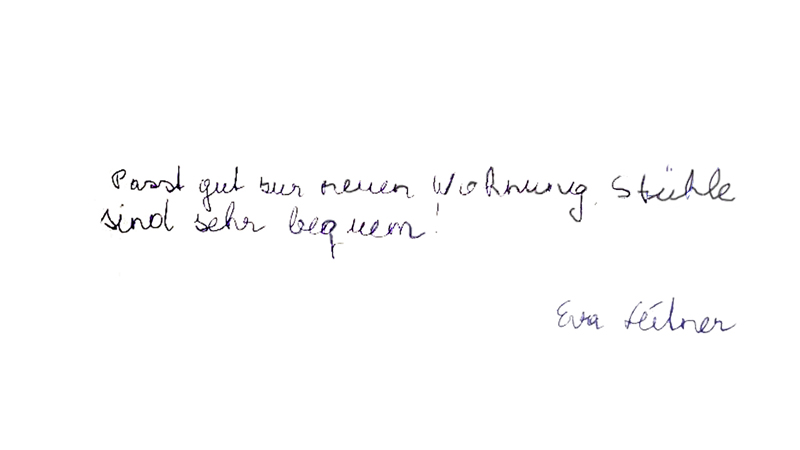 Passt gut zur neuen Wohnung. Stühle
sind sehr bequem!
Eva